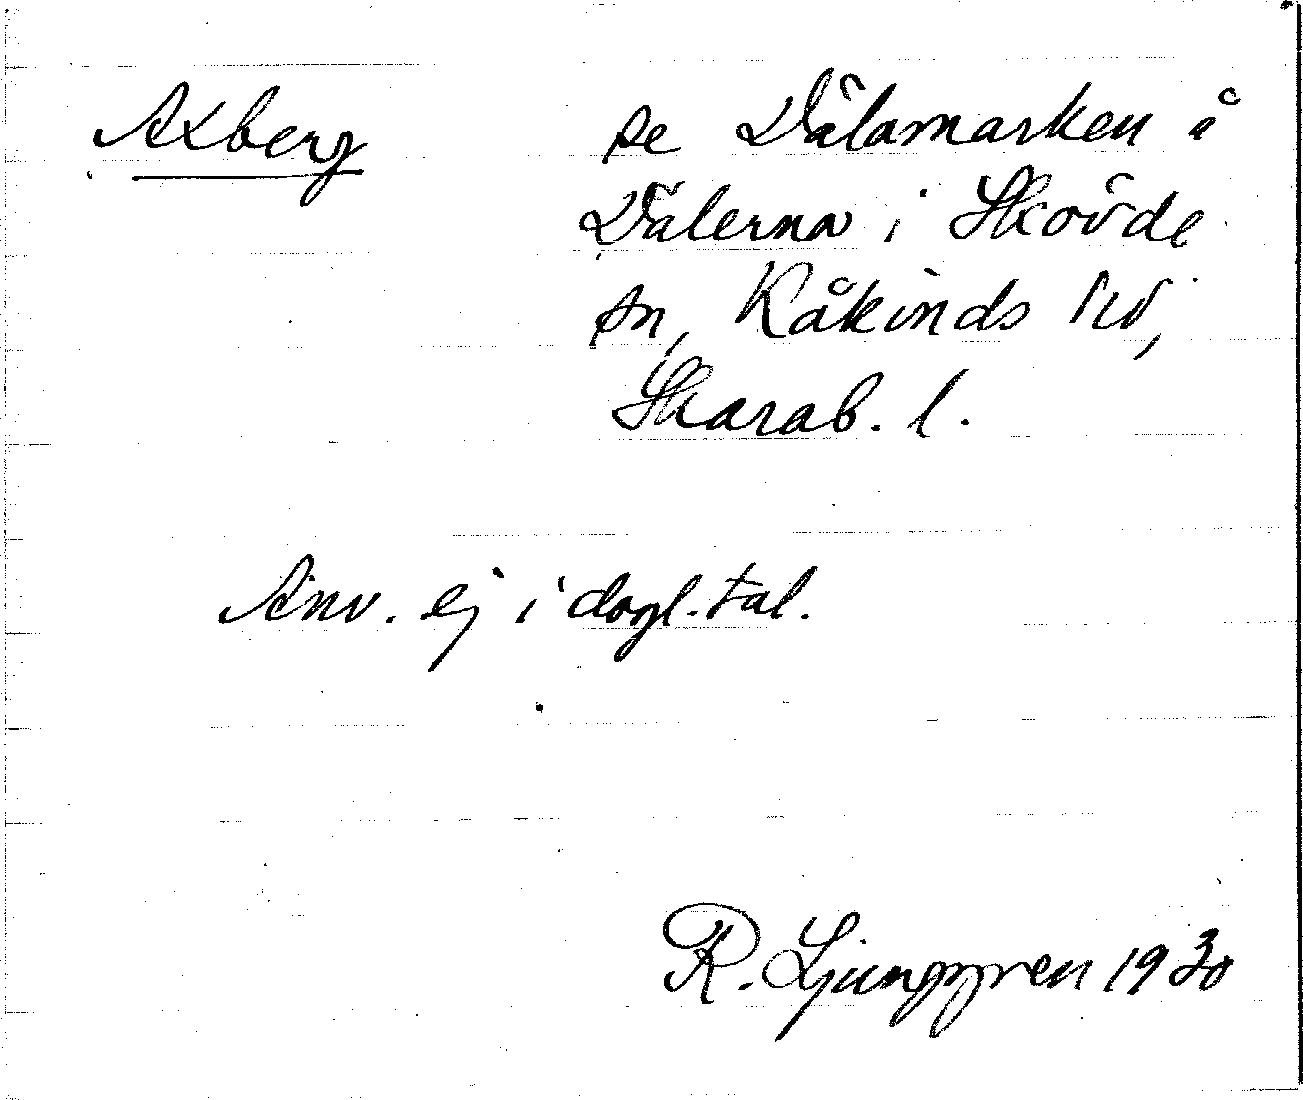 Axberg se Dälamarken å
Dälerna i Skövde
sn, Kåkinds hd,
Skarab. l.
Anv. ej i dagl. tal.
R. Ljunggren 1930